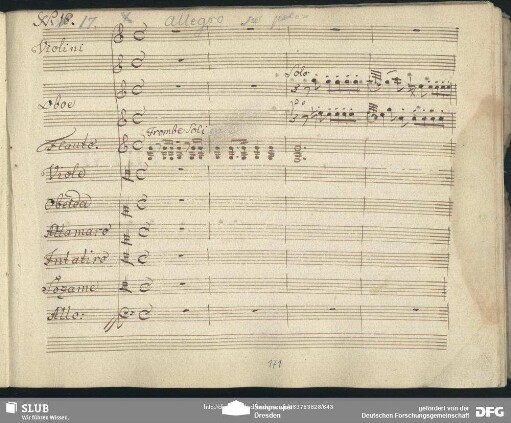 No: 18. 17. Allegro
Violini
Solo
Oboe
Trombe Soli
Flauto.
Viole
Obeida
Altamaro
Intatiro
Sozame
Allo:
171
SLUB
Wir führen Wissen.
Dresden
gefördert von der
Deutschen Forschungsgemeinschaft
DFG